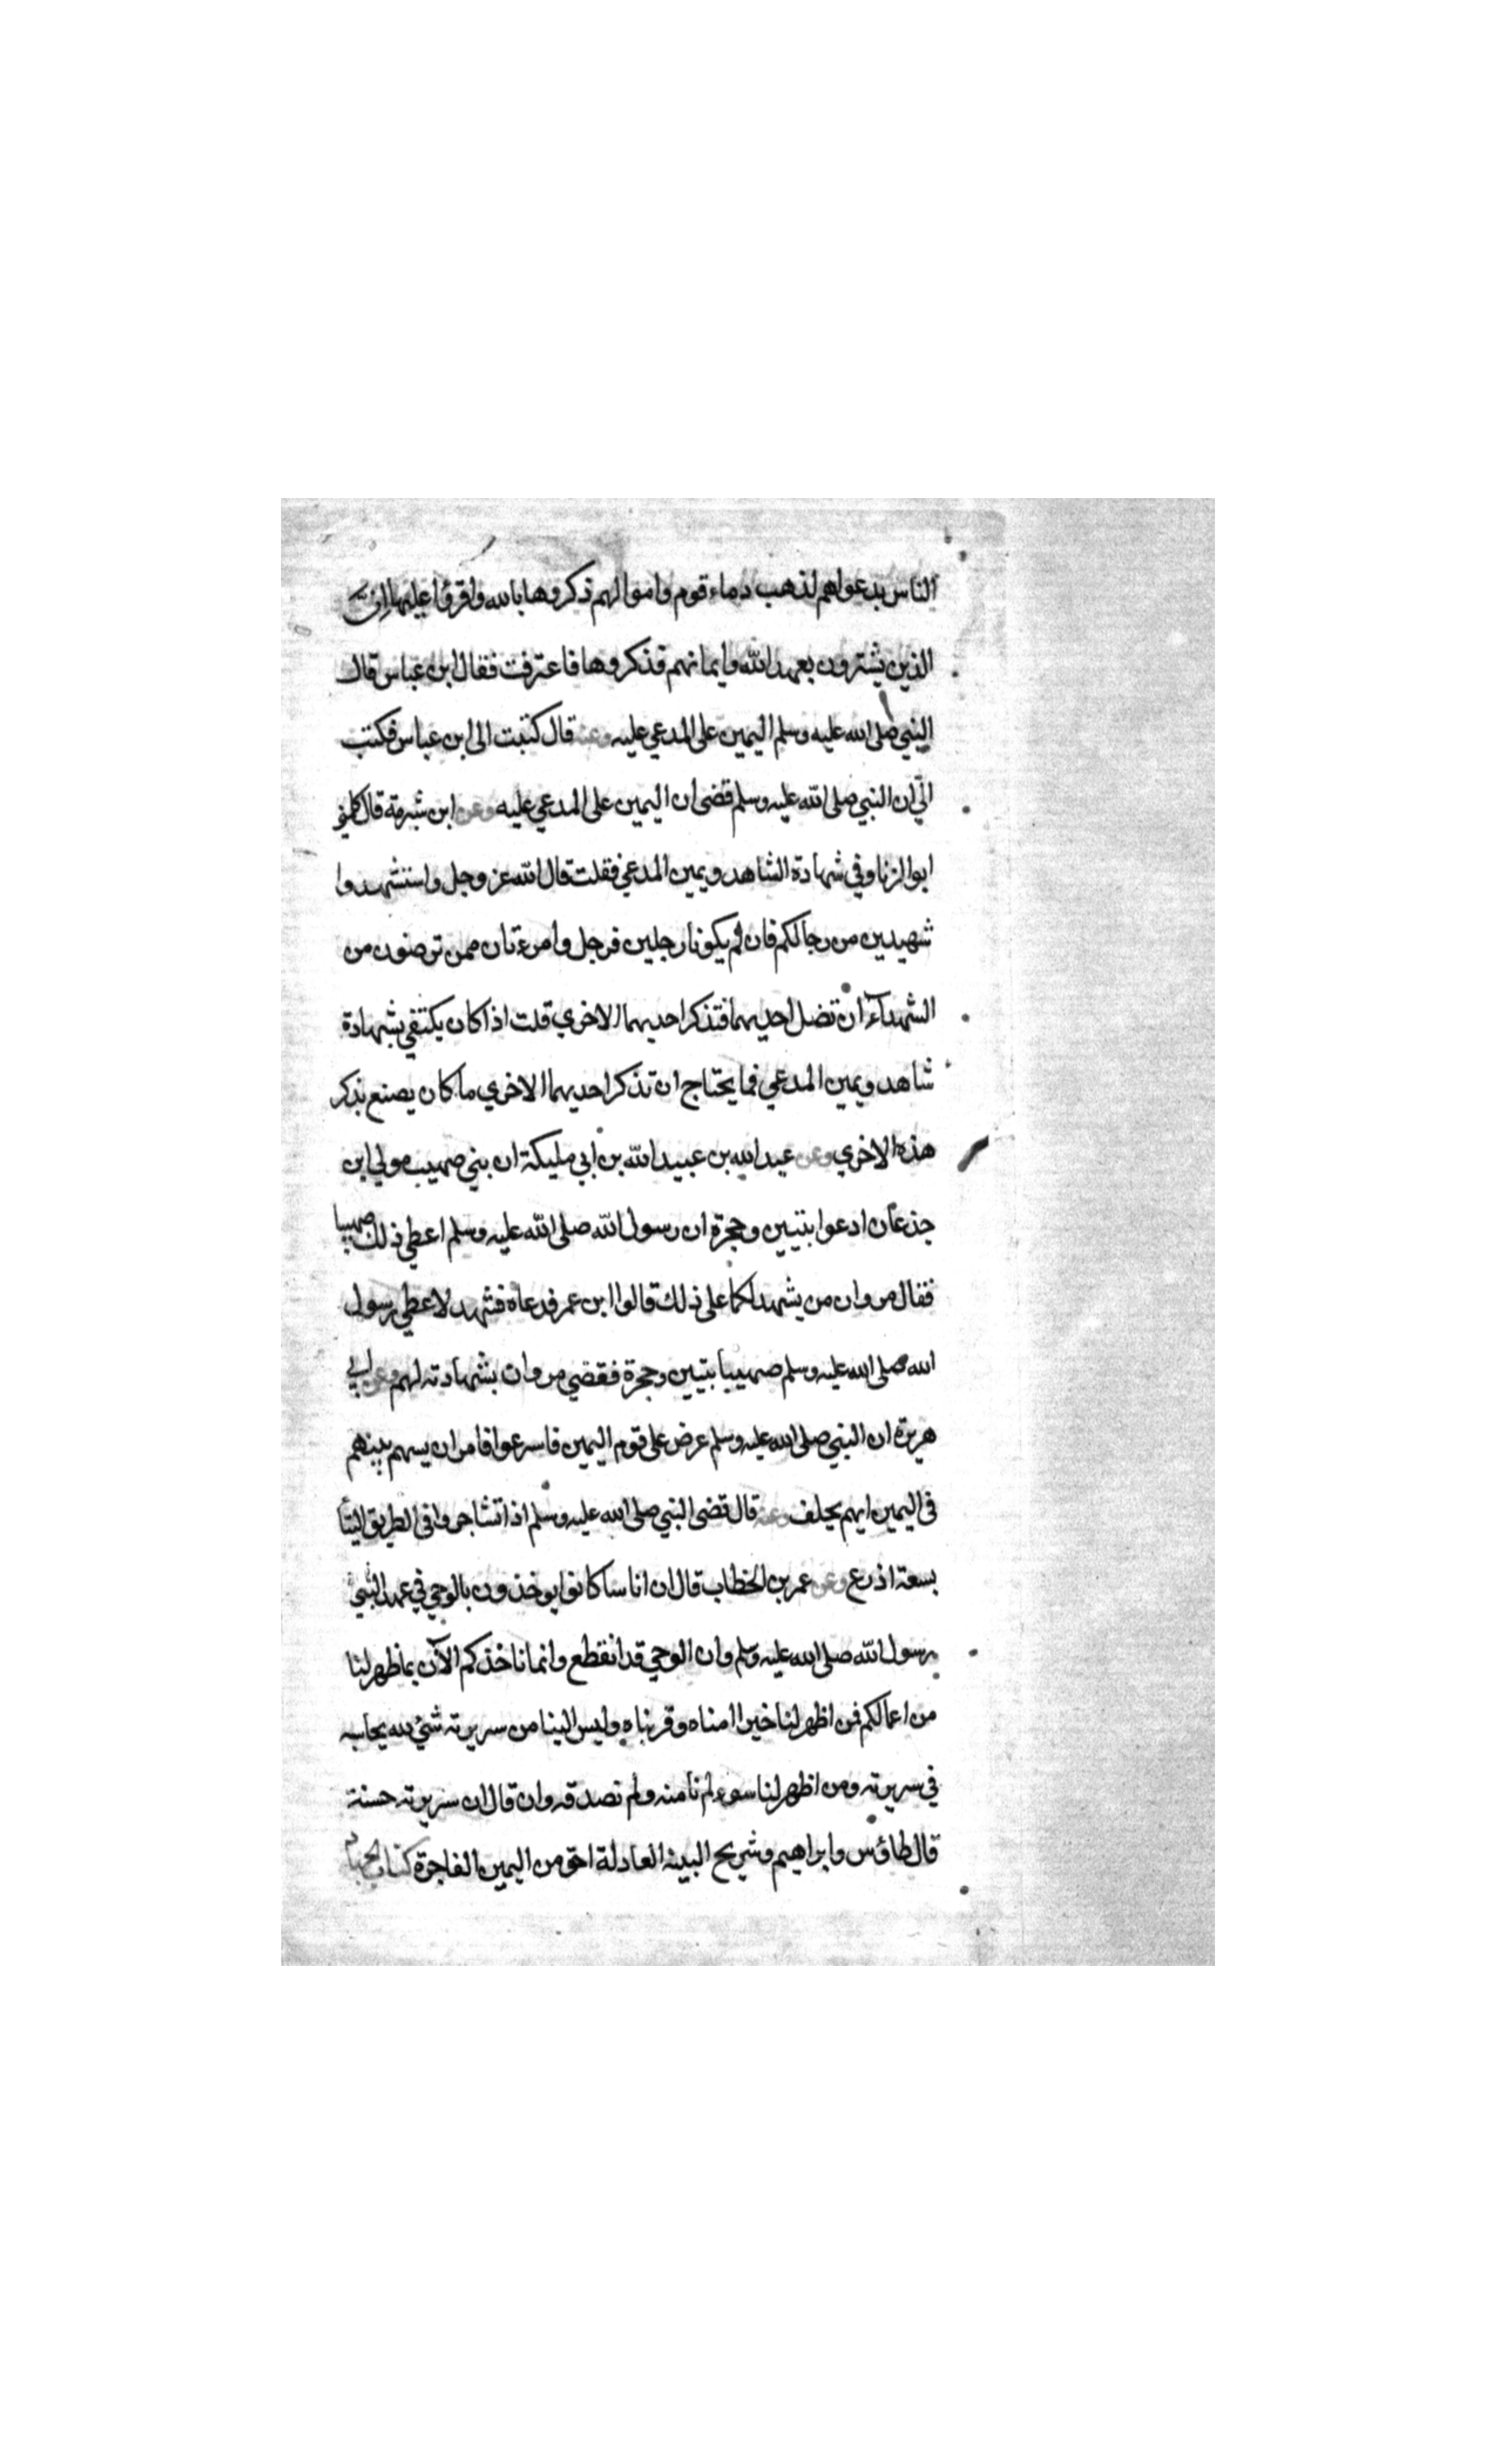 الناس بدعواهم لذهب دماء قوم واموالهم ذكروها بالله واقرؤا عليها ان
الذين يشترون بعهد الله وايمانهم فذكروها فاعترفت فقال ابن عباس قال
النبي صلى الله عليه وسلم اليمين على المدعي عليه وعنه قال كتبت الى ابن عباس فكتب
اليّ ان النبي صلى الله عليه وسلم قضى ان اليمين على المدعي عليه وعن ابن شبرمة قال كلمني
ابو الزناد في شهادة الشاهد ويمين المدعي فقلت قال الله عز وجل واستشهدوا
شهيدين من رجالكم فان لم يكونا رجلين فرجل وامرءتان ممن ترضون من
الشهدآء ان تضل احديهما فتذكر احديهما الاخري قلت اذا كان يكتفي بشهادة
شاهد ويمين المدعي فما يحتاج ان تذكر احديهما الاخري ما كان يصنع بذكر
هذه الاخري وعن عبد الله بن عبيد الله بن ابي مليكة ان بني صهيب مولي ابن
جذعان ادعوا بيتين وحجرة ان رسول الله صلى الله عليه وسلم اعطي ذلك صهيبا
فقال مروان من يشهد لكما على ذلك قالوا ابن عمر فدعاه فشهد لاعطي رسول
الله صلى الله عليه وسلم صهيبا بيتين وحجرة فقضي مروان بشهادته لهم وعن ابي
هريرة ان النبي صلى الله عليه وسلم عرض على قوم اليمين فاسرعوا فامر ان يسهم بينهم
في اليمين ايهم يحلف وعنه قال قضى النبي صلى الله عليه وسلم اذا تشاجروا في الطريق الميتأ
بسعة اذرع وعن عمر بن الخطاب قال ان اناسا كانوا يوخذون بالوحي في عهد النبي
رسول الله صلى الله عليه وسلم وان الوحي قد انقطع وانما ناخذكم الآن بما ظهر لنا
من اعمالكم فمن اظهر لنا خيرا امناه وقربناه وليس الينا من سريرته شيء الله يحاسبه
في سريرته ومن اظهر لنا سوء لم نامنه ولم نصدقه وان قال ان سريرته حسنة
قال طاؤس وابراهيم وشريح البينه العادلة احق من اليمين الفاجرة كتاب